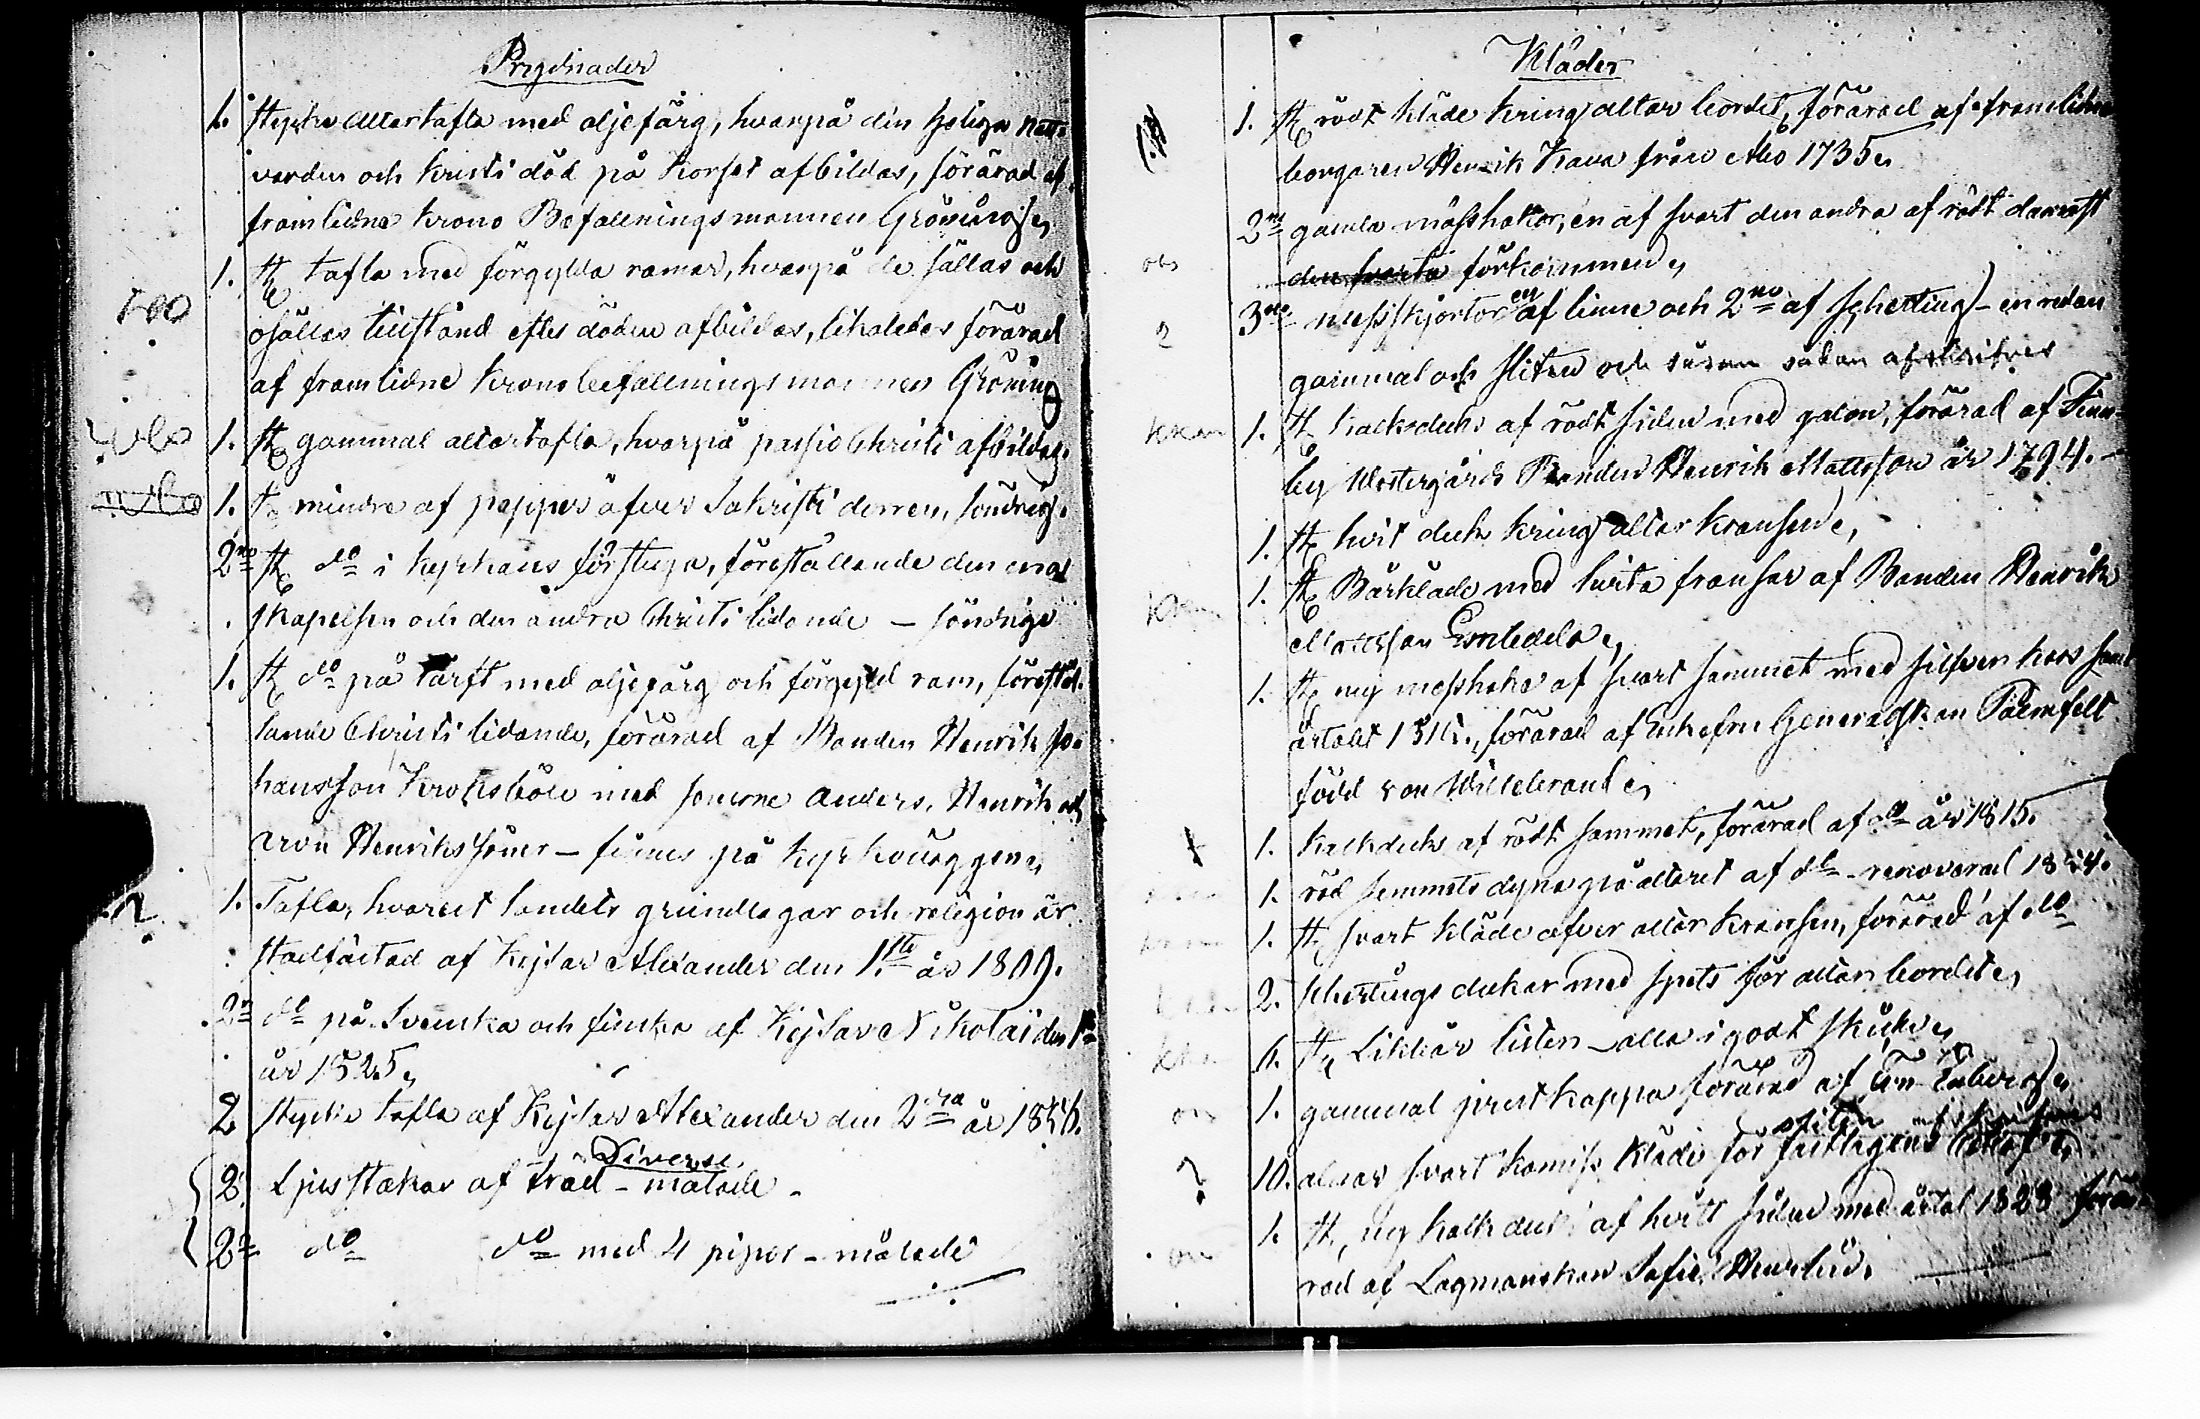 Prydnader
1. stycke Altartafla med oljefärg, hvarpå den heliga natt-
varden och Kristi död på Korset afbildas, förärad af
framlidne Krono Befallningsmannen Gröning,
1. st. tafla med förgylda ramar, hvarpå de sällas och
osällas tillstånd efter döden afbildas, likaledes förärad
af framlidne Krono befallningsmannen Gröning
1. st. gammal altartafla, hvarpå passio Christi afbildas.
1. st. mindre af papper öfver Sakristi dörren, söndrig.
2ne st. do i kyrkans förstuga, föreställande den ena
skapelsen och den andra Christi lidande – söndriga
1. st. do på tärft med oljefärg och förgyld ram, förestäl-
lande Christi lidande, förärad af Bonden Henrik Jo-
hansson Kroksböle med sönerne Anders, Henrik och
Arvu Henrikssöner – finnes på kyrkoväggen,
1. Tafla, hvarest landets grundlagar och religion är
stadfästad af Kejsar Alexander den 1ste år 1809.
2ne do på Svenska och finska af Kejsar Nikolai den 1ste
år 1825,
2 stycke tafla af Kejsar Alexander den 2dra år 1856.
Diverse
2. Ljusstakar af träd – målade –
2ne do do med 4 pipor – målade
Kläder
1. st. rödt kläde kring altar bordet, förärad af framlidne
borgaren Henrik Kava från Åbo 1735,
2ne gamla mässhakar, en af svart den andra af rödt damast
den svarta förkommen,
3ne messskjortor en af linne och 2ne af Scherting – en redan
gammal och sliten och såsom sådan afskrifves
1. st. kalkduk af rödt siden med galon, förärad af Finn-
by Westergårds Bonden Henrik Mattsson år 1794. –
1. st. hvit duk kring altar kransen,
1. st. Bårkläde med hvita fransar af Bonden Henrik
Mattsson Embedela,
1. st. ny messhaka af svart sammet med silfver kors samt
årtalet 1815., förärad af Enkefru Generalskan Palmfelt
född von Willebrand,
1. Kalkduk af rödt sammet, förärad af do år 1815.
1. röd sammets dyna på altaret af do – renoverad 1854.
1. st. svart kläde öfver altar kransen, förärad af do
2. schertings dukar med spets för altar bordet,
6. st. Likbår listen – alla i godt skick,
1. gammal prest kappa förärad af
sliten afskrifves
10. alnar svart kamiss kläde för fastlagens
1. st. ny kalkduk af hvitt siden med årtal 1828 förä-
rad af Lagmanskan Sofie